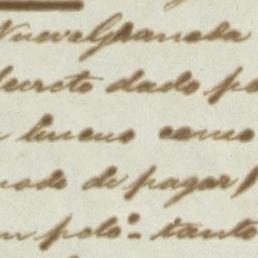 Nueva Granada
decreto dado po
bueno como
modo de pagar
polo: tanto